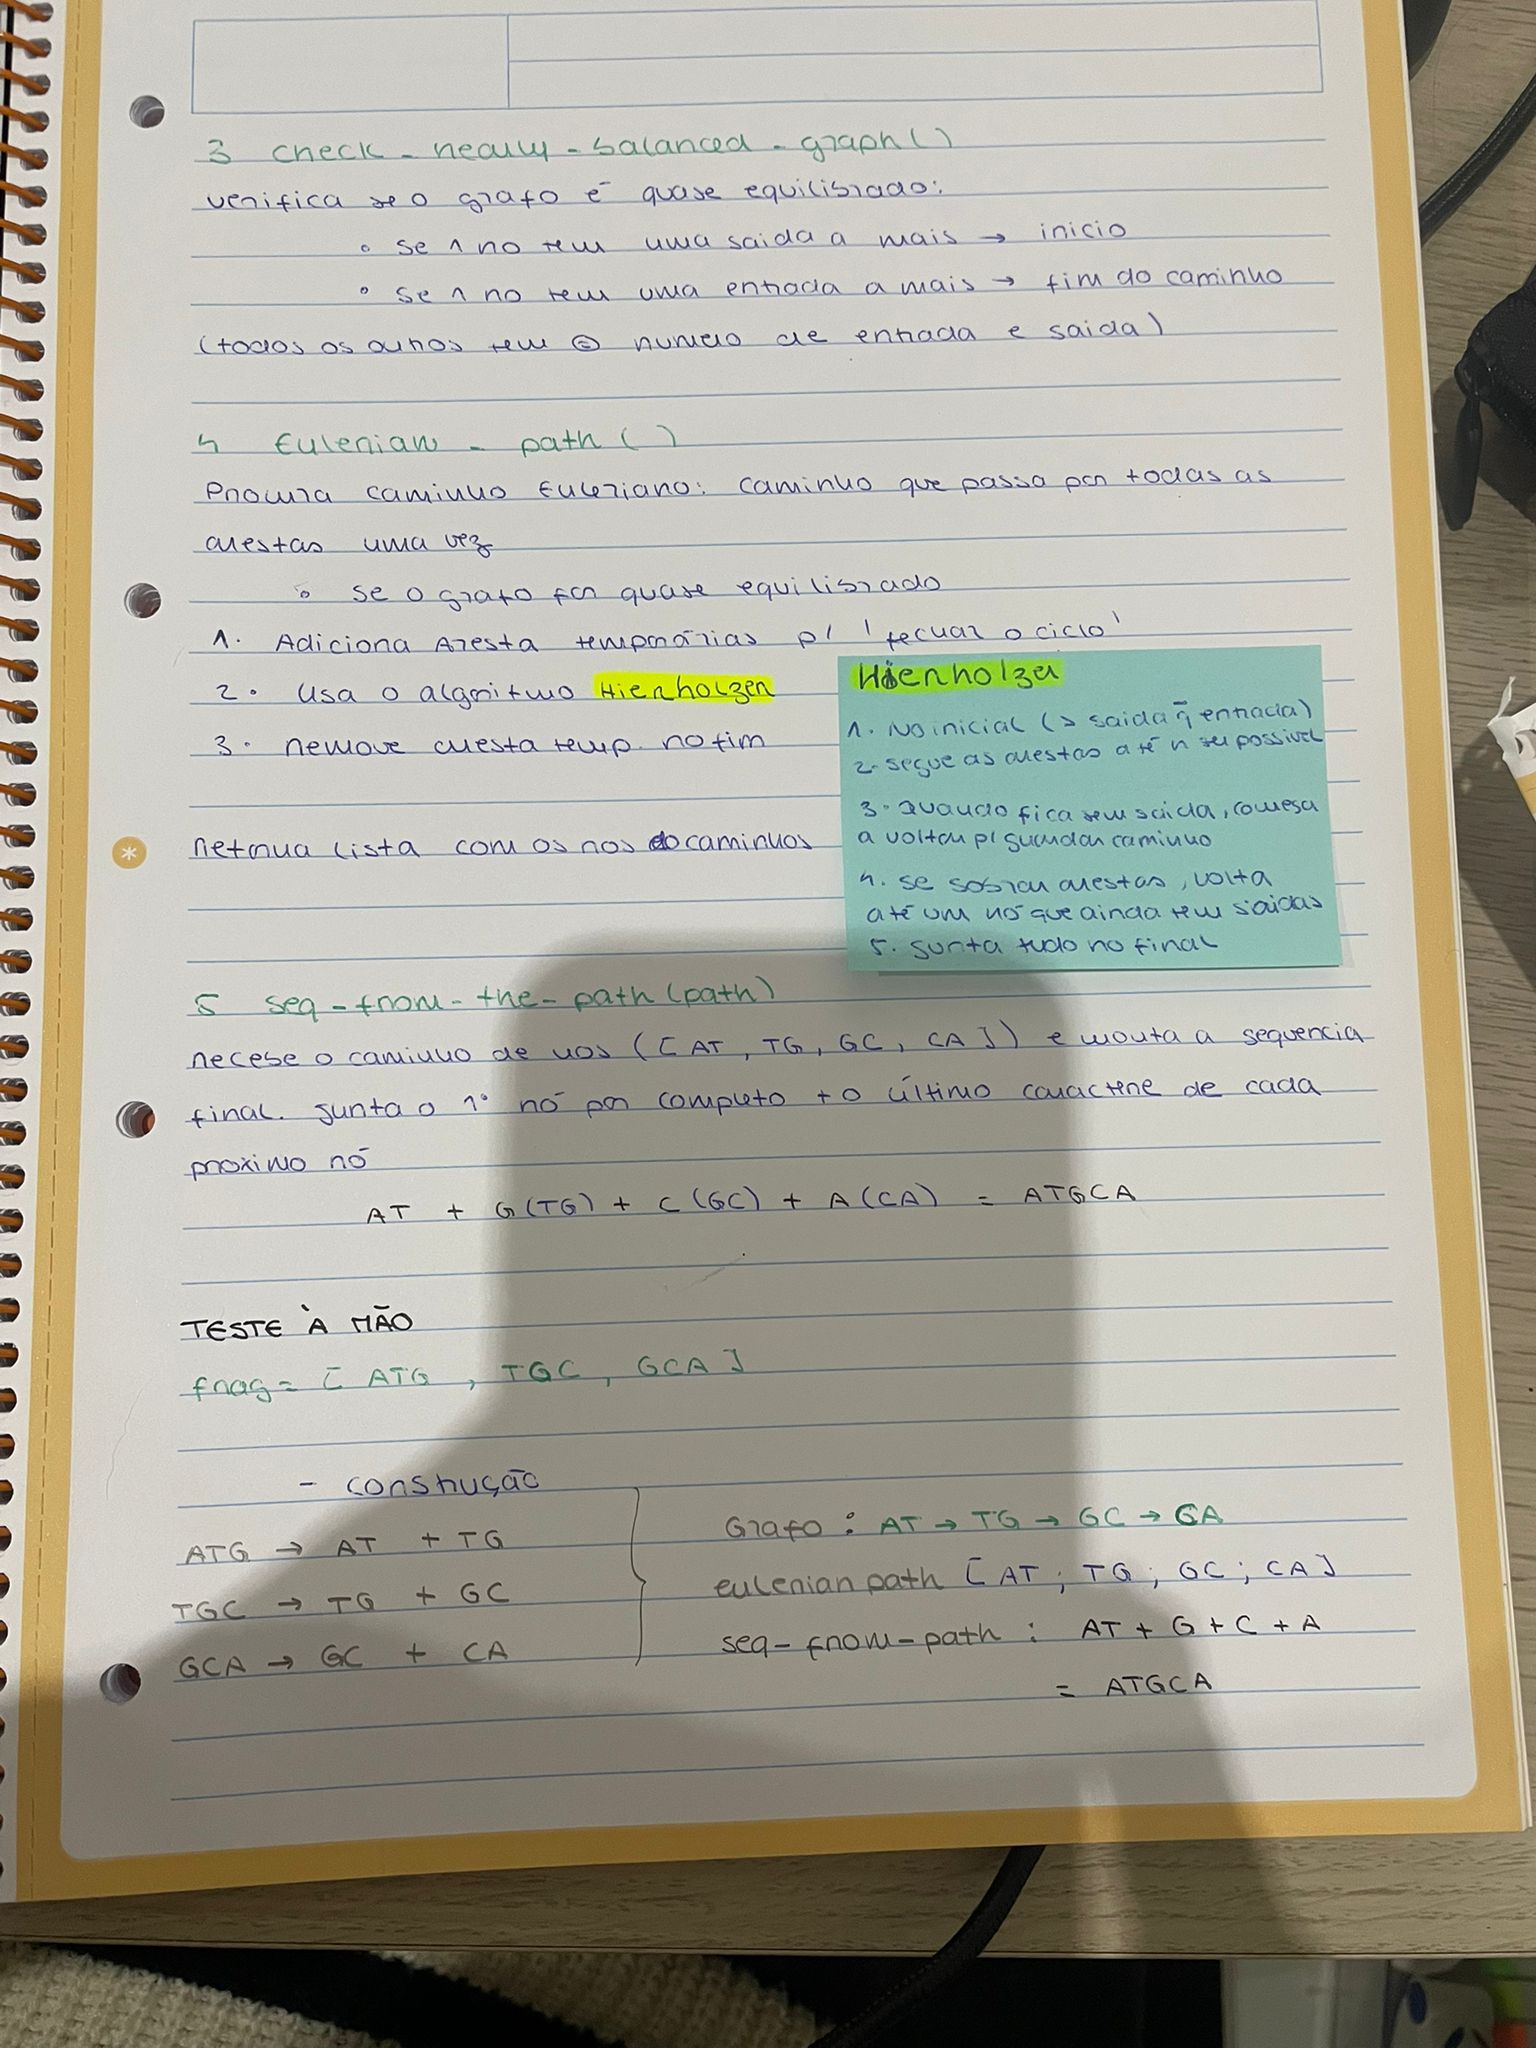 3 check_nearly_balanced_graph()
verifica se o grafo é quase equilibrado:
◦ se 1 no tem uma saida a mais → inicio
◦ se 1 no tem uma entrada a mais → fim do caminho
(todos os outros tem = numero de entrada e saida)
4 Eulerian_path()
Procura caminho Euleriano: caminho que passa por todas as
arestas uma vez
◦ se o grafo for quase equilibrado
1. Adiciona Aresta temporárias p/ 'fechar o ciclo'
2. Usa o algoritmo Hierholzer
3. remove aresta temp. no fim
retorna lista com os nos do caminhos
Hierholzer
1. No inicial (> saida q̃ entrada)
2. segue as arestas até n ser possivel
3. Quando fica sem saida, começa
a voltar p/ guardar caminho
4. se sobrar arestas, volta
até um nó que ainda tem saidas
5. Junta tudo no final
5 seq-from-the-path(path)
recebe o caminho de nos ([AT, TG, GC, CA]) e monta a sequencia
final. Junta o 1º nó por completo + o último caractere de cada
proximo nó
AT + G(TG) + C(GC) + A(CA) = ATGCA
TESTE À MÃO
frag = [ATG, TGC, GCA]
- construção
ATG → AT + TG
TGC → TG + GC
GCA → GC + CA
Grafo: AT → TG → GC → CA
eulerian path [AT; TG; GC; CA]
seq-from-path: AT + G + C + A
= ATGCA